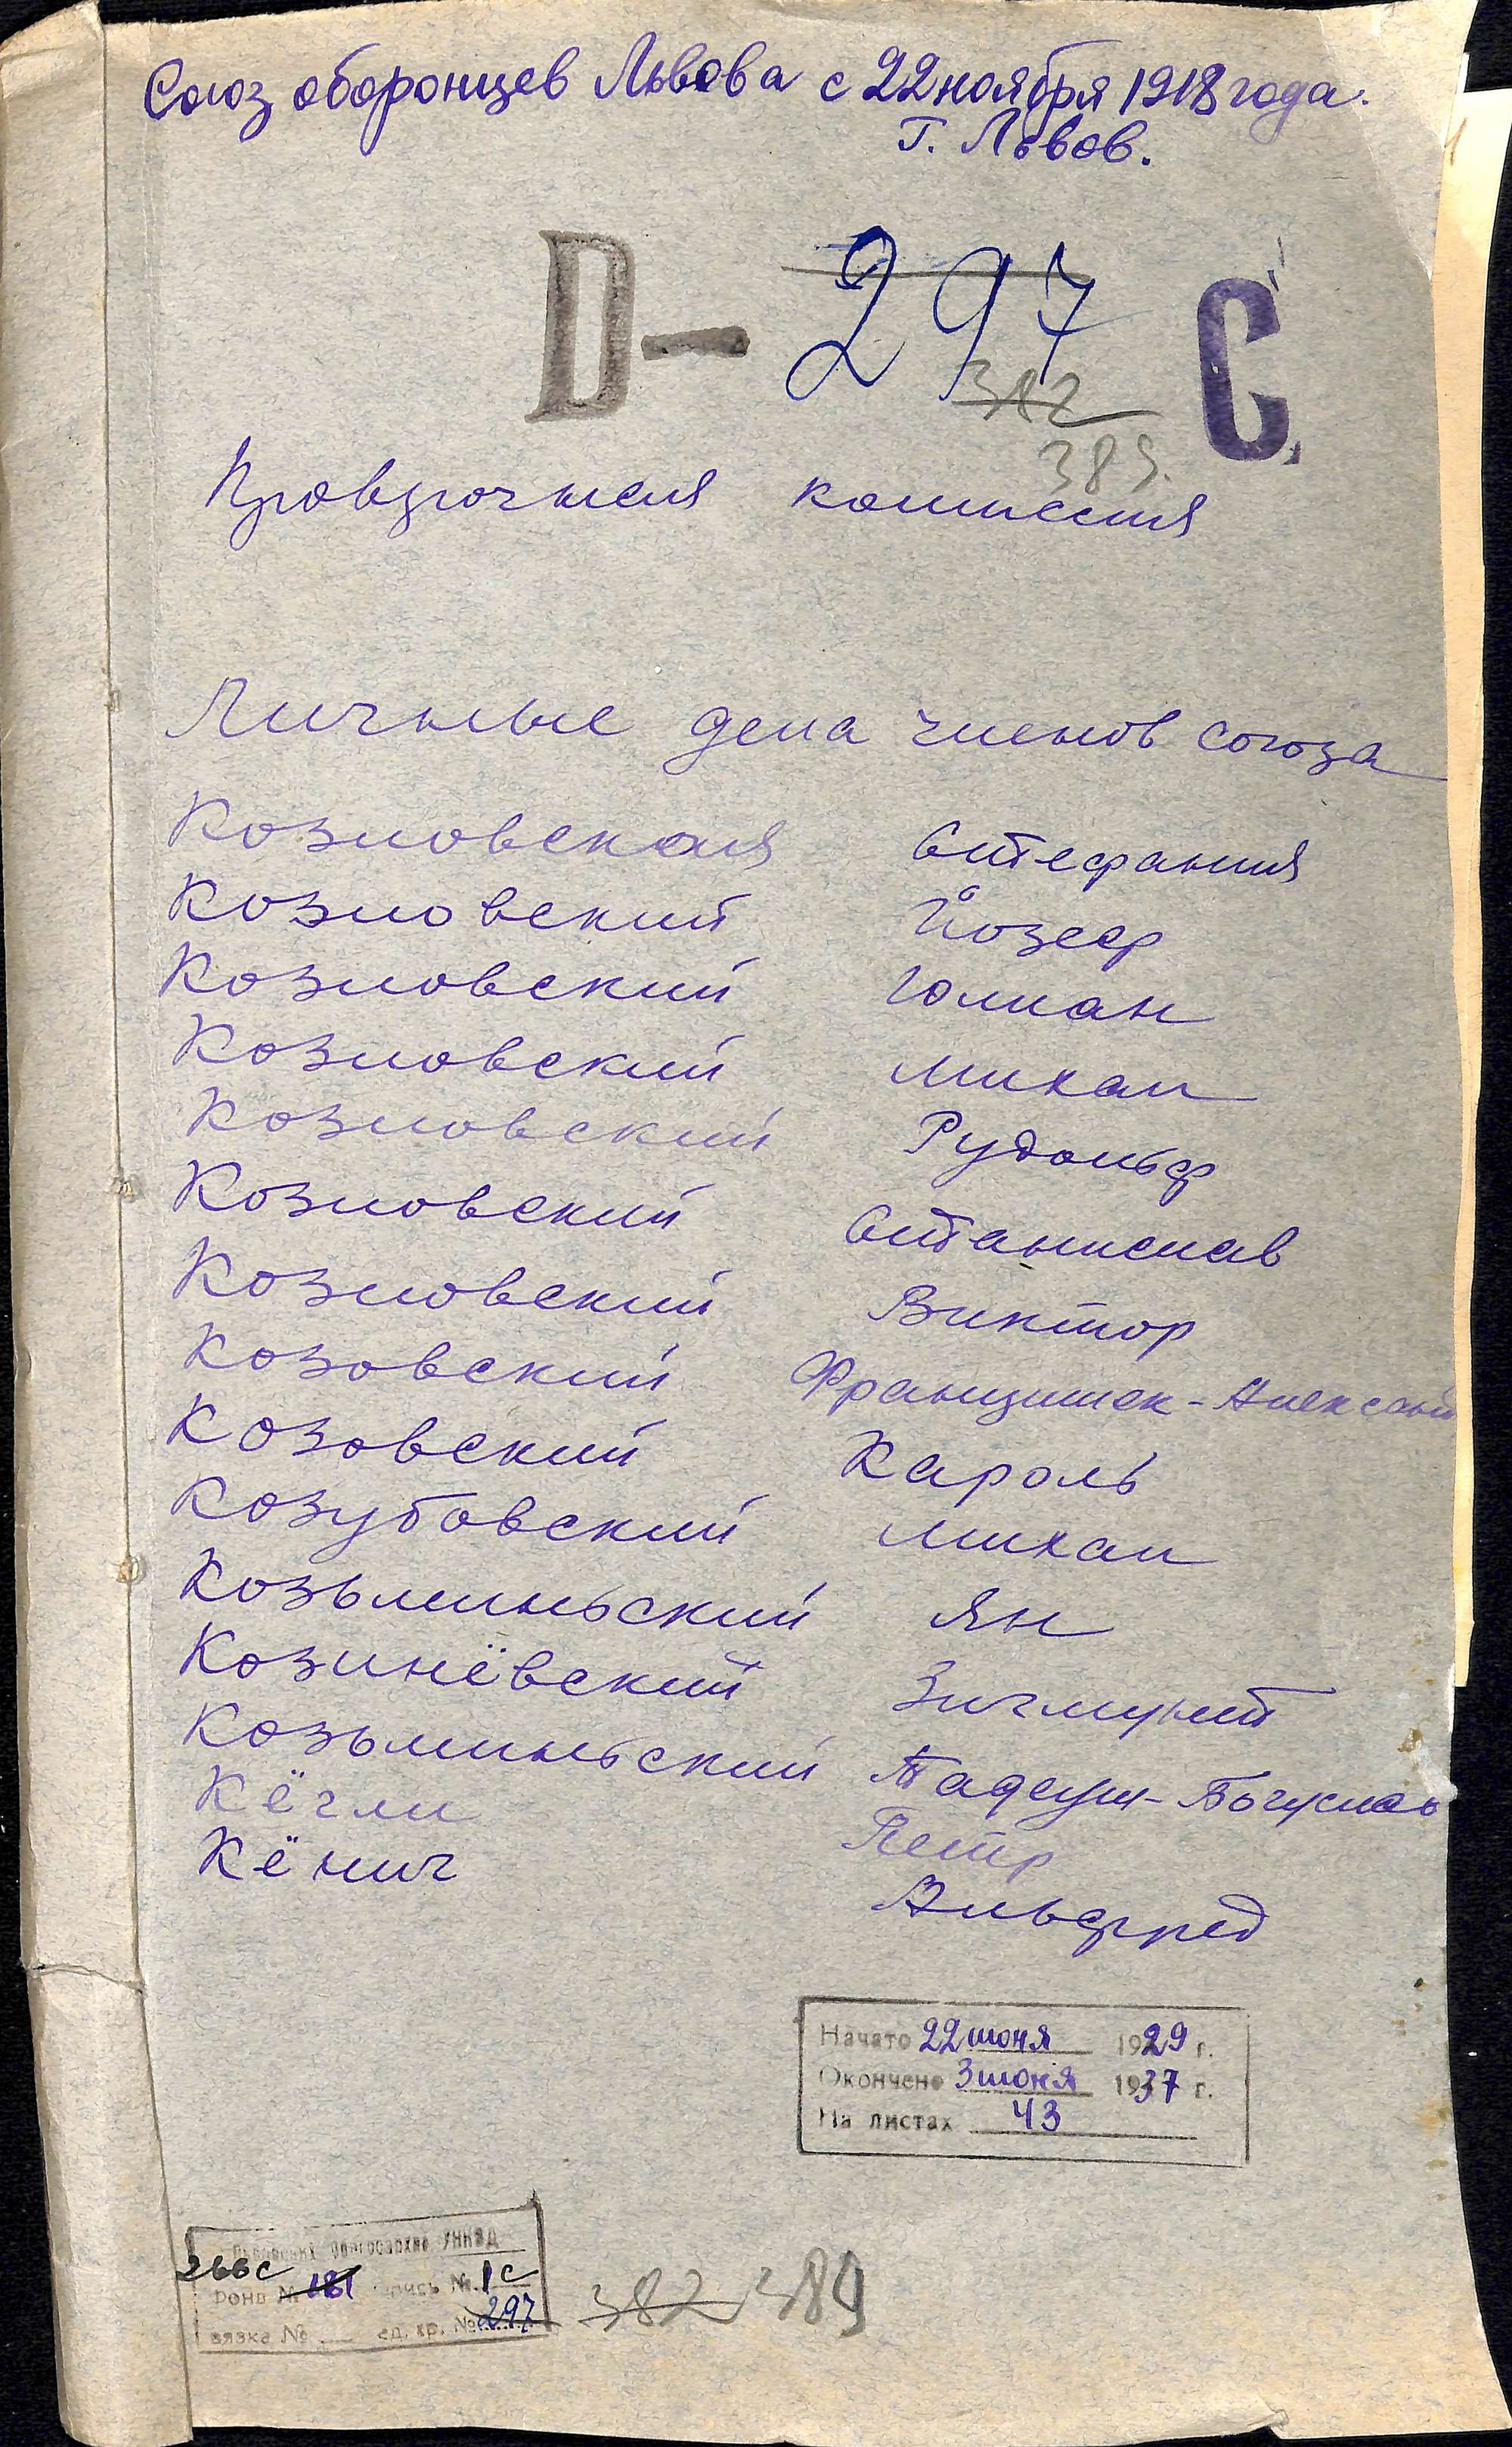 Союз оборонцев Львова с 22 ноября 1918 года.
г. Львов.
D — 297 С
382
389.
Проверочная комиссия
Личные дела членов союза
Козловская Стефания
Козловский Йозеф
Козловский Юлиан
Козловский Михал
Козловский Рудольф
Козловский Станислав
Козловский Виктор
Козовский Францишек-Алексан
Козовский Кароль
Козубовский Михал
Козьминьский Ян
Козинёвский Зигмунт
Козьминьский Тадеуш-Богуслав
Кёгли Петр
Кёниг Альфред
Начато 22 июня 1929 г.
Окончено 3 июня 1937 г.
На листах 43
Облгосархив УНКВД
266с
Фонд № 181 опись № 1с
вязка № ед. хр. № 297
382 389